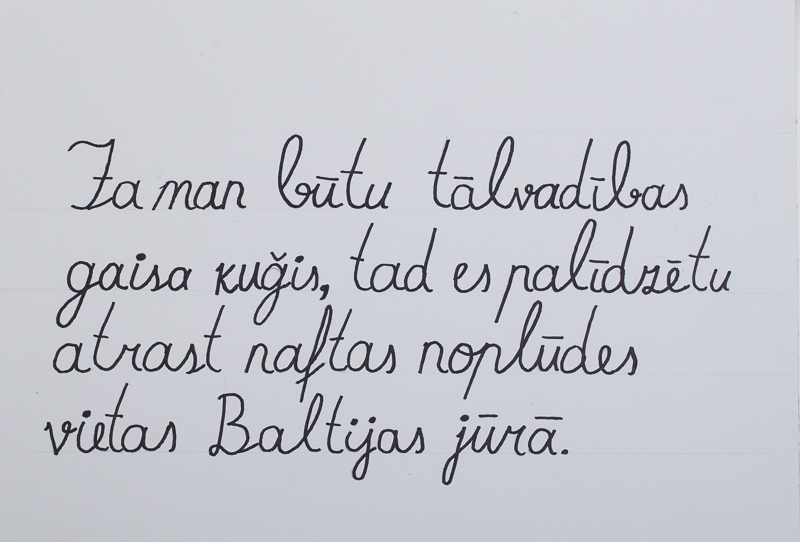 Ja man būtu tālvadības
gaisa kuģis, tad es palīdzētu
atrast naftas noplūdes
vietas Baltijas jūrā.